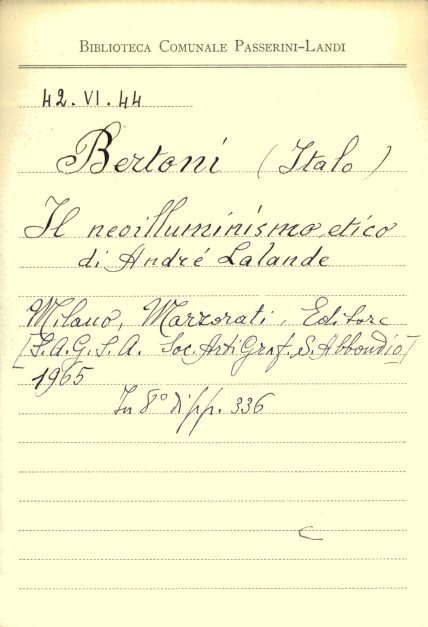 BIBLIOTECA COMUNALE PASSERINI-LANDI
42.VI.44
Bertoni (Italo)
Il neoilluminismo etico
di André Lalande
Milano, Marzorati, Editore
[S.A.G.S.A. Soc. Arti Graf. S. Abbondio]
1965
In 8° di pp. 336